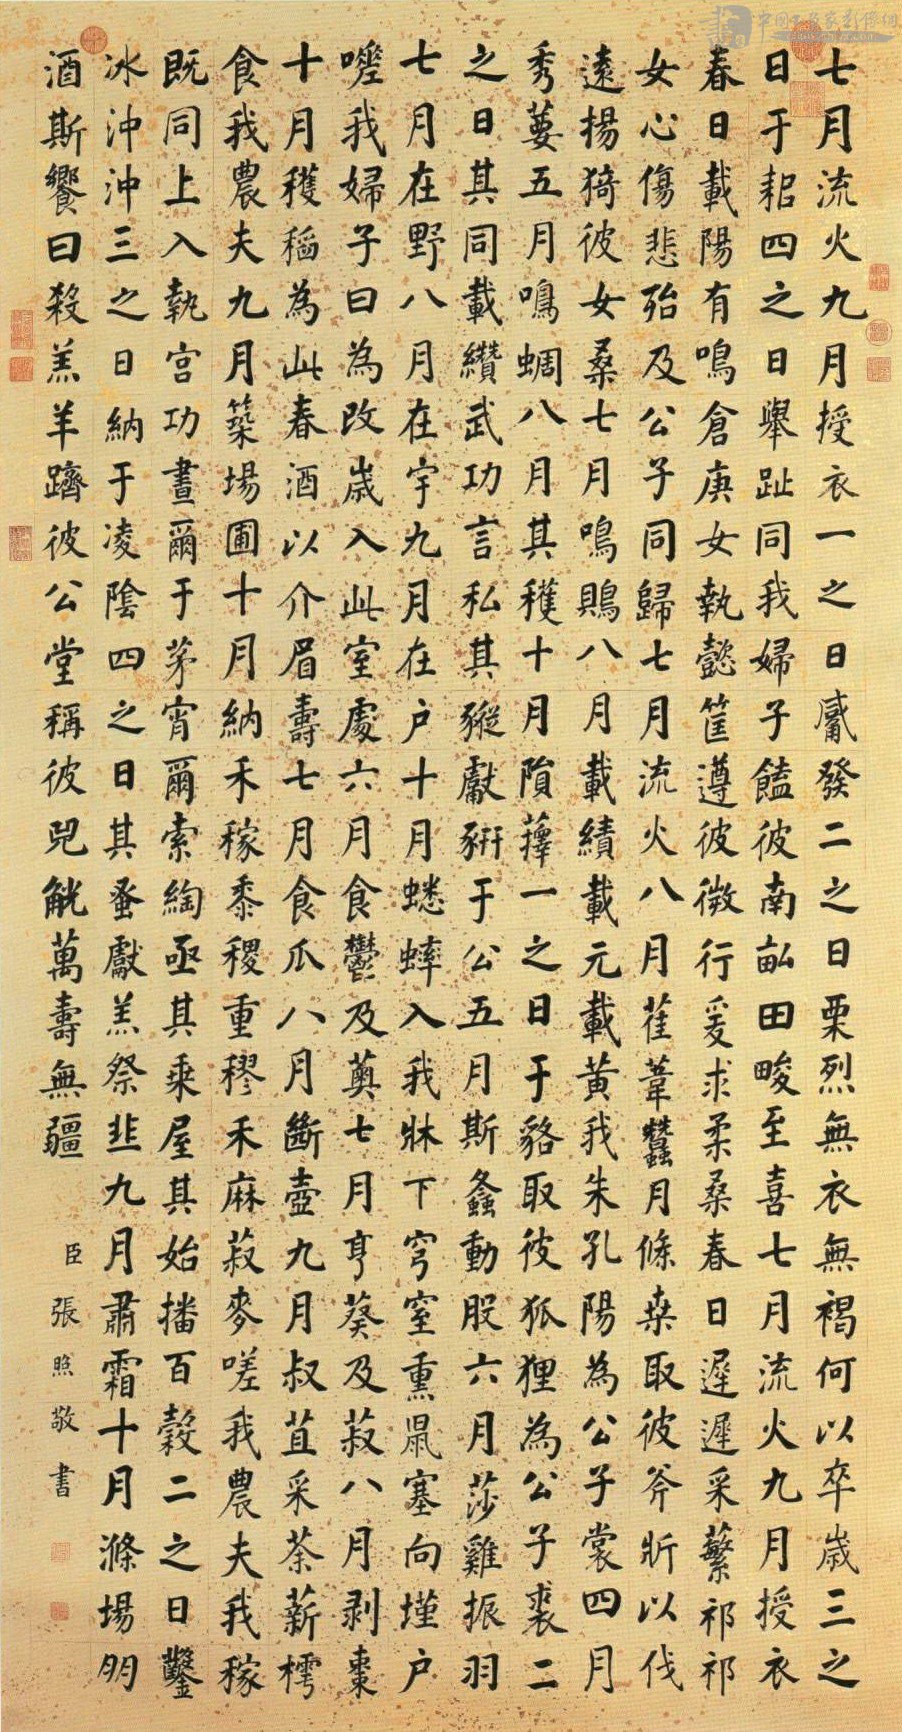 七月流火九月授衣一之日觱發二之日栗烈無衣無褐何以卒歲三之
日于耜四之日舉趾同我婦子饁彼南畝田畯至喜七月流火九月授衣
春日載陽有鳴倉庚女執懿筐遵彼微行爰求柔桑春日遲遲采蘩祁祁
女心傷悲殆及公子同歸七月流火八月萑葦蠶月條桑取彼斧斨以伐
遠揚猗彼女桑七月鳴鵙八月載績載元載黃我朱孔陽為公子裳四月
秀葽五月鳴蜩八月其穫十月隕蘀一之日于貉取彼狐狸為公子裘二
之日其同載纘武功言私其豵獻豜于公五月斯螽動股六月莎雞振羽
七月在野八月在宇九月在户十月蟋蟀入我牀下穹窒熏鼠塞向墐户
嗟我婦子曰為改歲入此室處六月食鬱及薁七月亨葵及菽八月剥棗
十月穫稻為此春酒以介眉壽七月食瓜八月斷壺九月叔苴采荼薪樗
食我農夫九月築場圃十月納禾稼黍稷重穋禾麻菽麥嗟我農夫我稼
既同上入執宮功晝爾于茅宵爾索綯亟其乘屋其始播百穀二之日鑿
冰沖沖三之日納于凌陰四之日其蚤獻羔祭韭九月肅霜十月滌場朋
酒斯饗曰殺羔羊躋彼公堂稱彼兕觥萬壽無疆
臣張照敬書